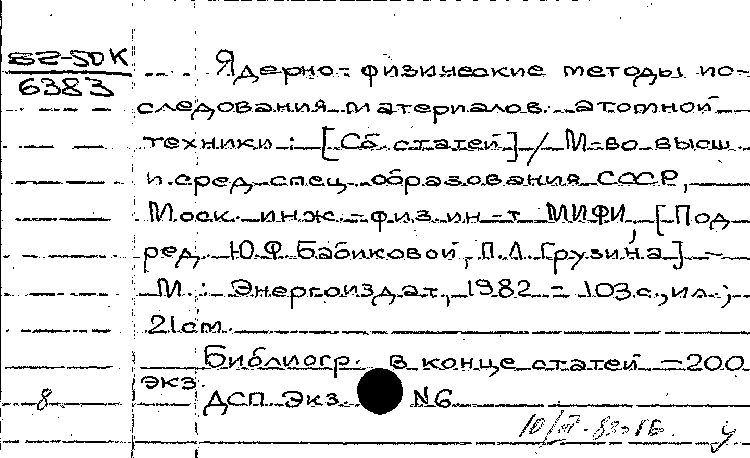 82-50К
6383
Ядерно-физические методы ис-
следования материалов атомной
техники: [Сб. статей] / М-во высш.
и сред. спец. образования СССР,
Моск. инж.-физ. ин-т МИФИ, [Под
ред. Ю.Ф. Бабиковой, П.Л. Грузина] -
М.: Энергоиздат, 1982 - 103 с., ил.;
21 см.
Библиогр. в конце статей - 200
экз.
8 ДСП Экз. N6